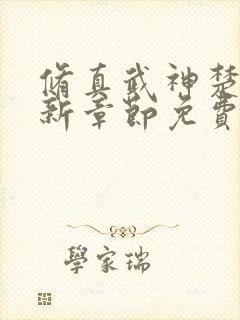 脩真武神楚
新章節免費
學家瑞